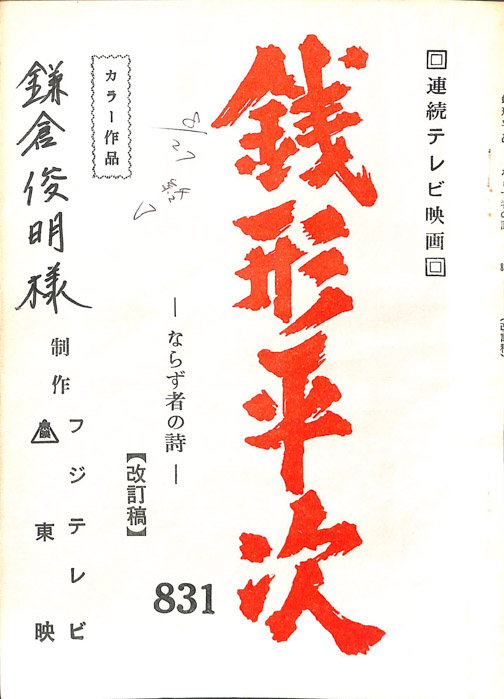 回連続テレビ映画回
銭形平次
―ならず者の詩―
831
【改訂稿】
8/27
カラー作品
制作
フジテレビ
東映
鎌倉俊明様